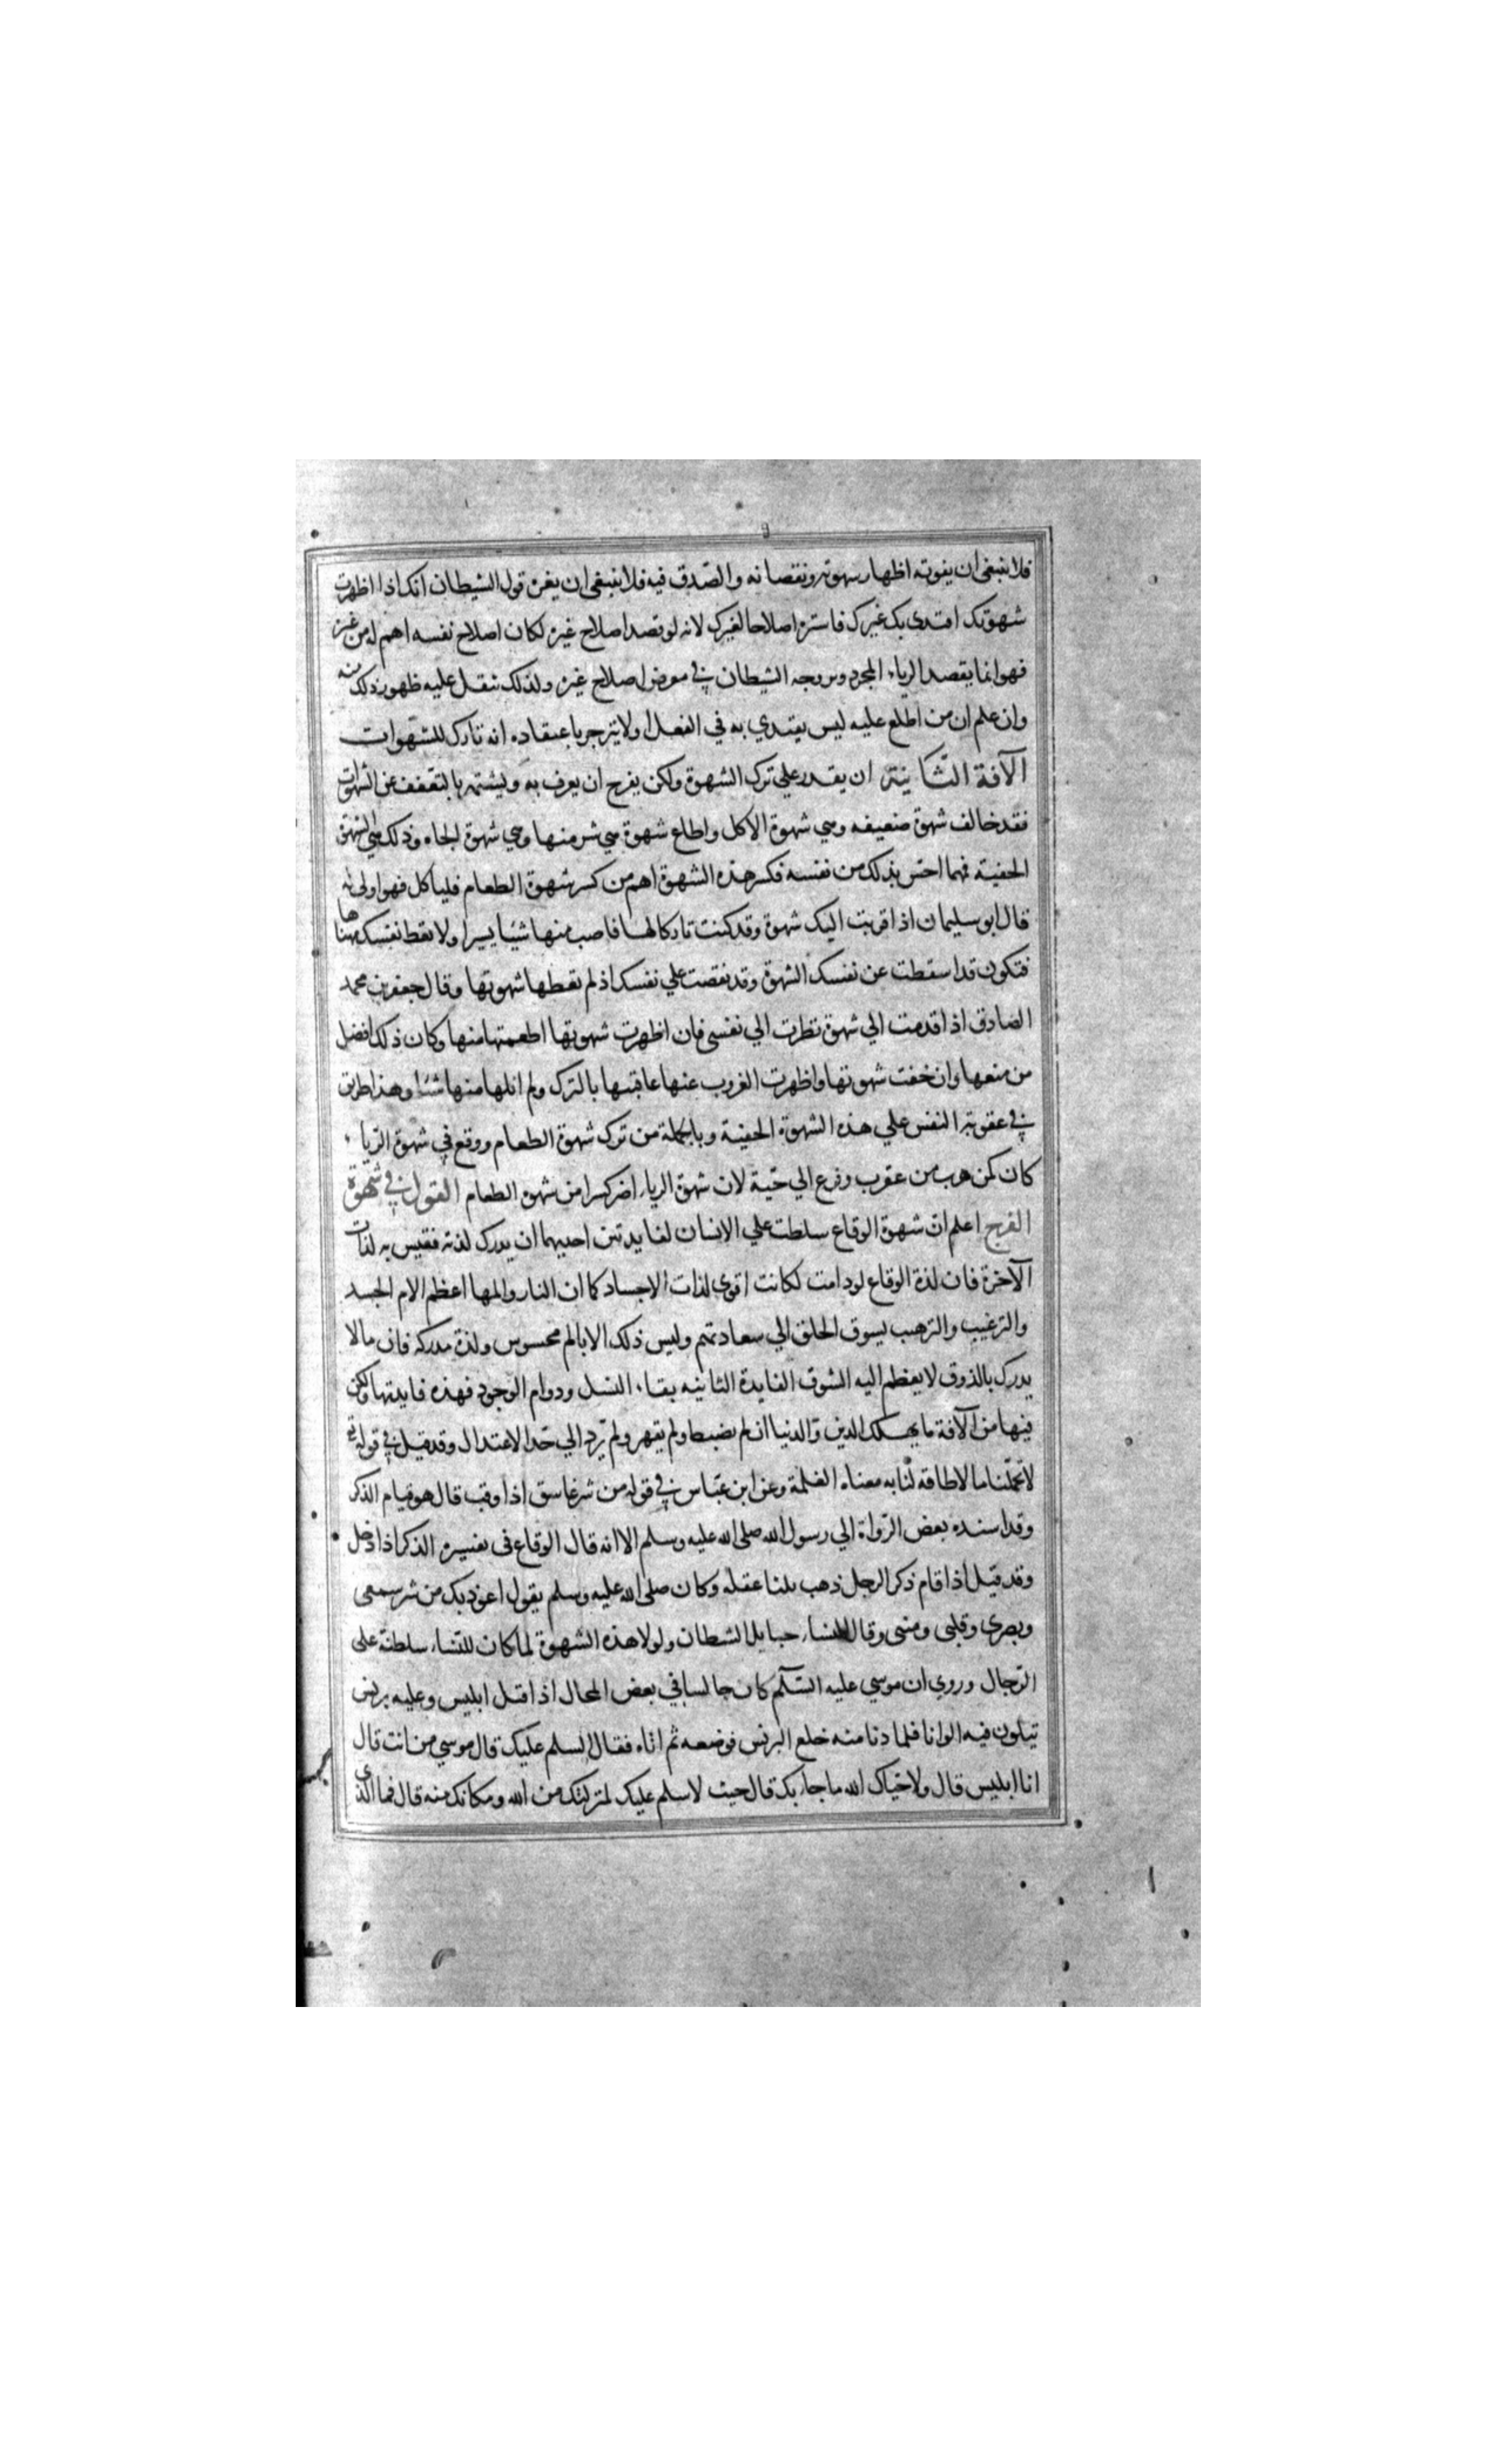 فلا ينبغى ان يفوته اظهار شهوته ونقصانه والصّدق فيه فلا ينبغى ان يغره قول الشيطان انك اذا اظهرت
شهوتك اقتدى بك غيرك فاستره اصلاحا لغيرك لانه لو قصد اصلاح غيره لكان اصلاح نفسه اهم له من غيره
فهو انما يقصد الرياء المجرد ويروجه الشيطان في معرض اصلاح غيره ولذلك ثقل عليه ظهور ذلك منه
وان علم ان من اطلع عليه ليس يقتدي به في الفعل او لا ينزجر باعتقاده انه تارك للشهوات
الآفة الثّانية ان يقدر علي ترك الشهوة ولكن يفرح ان يعرف به ويشتهر بالتعّفف عن الشهوات
فقد خالف شهوة ضعيفه وهي شهوة الاكل واطاع شهوة هي شر منها وهي شهوة الجاه وذلك هي الشهوة
الخفية فمهما احس بذلك من نفسه فكسر هذه الشهوة اهم من كسر شهوة الطعام فلياكل فهو اولى له
قال ابو سليمان اذا قربت اليك شهوة وقد كنت تاركا لها فاصب منها شيئا يسيرا ولا تعط نفسك مناها
فتكون قد اسقطت عن نفسك الشهوة وقد نغصت علي نفسك اذ لم تعطها شهوتها وقال جعفر بن محمد
الصادق اذا قدمت الي شهوة نظرت الي نفسى فان اظهرت شهوتها اطعمتها منها وكان ذلك افضل
من منعها وان خفت شهوتها واظهرت الغروب عنها عاقبتها بالترك ولم انلها منها شئا وهذا طريق
في عقوبة النفس علي هذه الشهوة الخفية وبالجملة من ترك شهوة الطعام ووقع في شهوة الرياء
كان كمن هرب من عقرب وفزع الي حيّة لان شهوة الرياء اضر كسرا من شهوة الطعام القول في شهوة
الفرج اعلم ان شهوة الوقاع سلطت علي الانسان لفايدتين احديهما ان يدرك لذته فقيس به لذات
الآخرة فان لذة الوقاع لو دامت لكانت اقوى لذات الاجساد كما ان النار والمها اعظم الام الجسد
والترغيب والترهيب يسوق الخلق الي سعادتهم وليس ذلك الا بالم محسوس ولذة مدركه فان ما لا
يدرك بالذوق لا يعظم اليه الشوق الفايدة الثانيه بقاء النسل ودوام الوجود فهذه فايدتها ولكن
فيها من الآفة ما يهلك الدين والدنيا ان لم يضبط ولم يقهر ولم يرد الي حد الاعتدال وقد قيل في قوله تع
لا تحمّلنا ما لا طاقه لنا به معناه الغلمة وعن ابن عبّاس في قوله من شر غاسق اذا وقب قال هو قيام الذكر
وقد اسنده بعض الرّواة الي رسول الله صلى الله عليه وسلم الا انه قال الوقاع فى تفسيره الذكر اذا دخل
وقد قيل اذا قام ذكر الرجل ذهب ثلثا عقله وكان صلى الله عليه وسلم يقول اعوذ بك من شر سمعى
وبصرى وقلبى ومنيى وقال النساء حبايل الشيطان ولولا هذه الشهوة لما كان للنّساء سلطنة على
الرّجال وروي ان موسي عليه السّلم كان جالسا في بعض المحال اذ اقبل ابليس وعليه برنس
تيلون فيه الوانا فلما دنا منه خلع البرنس فوضعه ثم اتاه فقال السلم عليك قال موسي من انت قال
انا ابليس قال ولا حيّاك الله ما جاء بك قال حيث لاسلم عليك لمنزلتك من الله ومكانك منه قال فما الذى